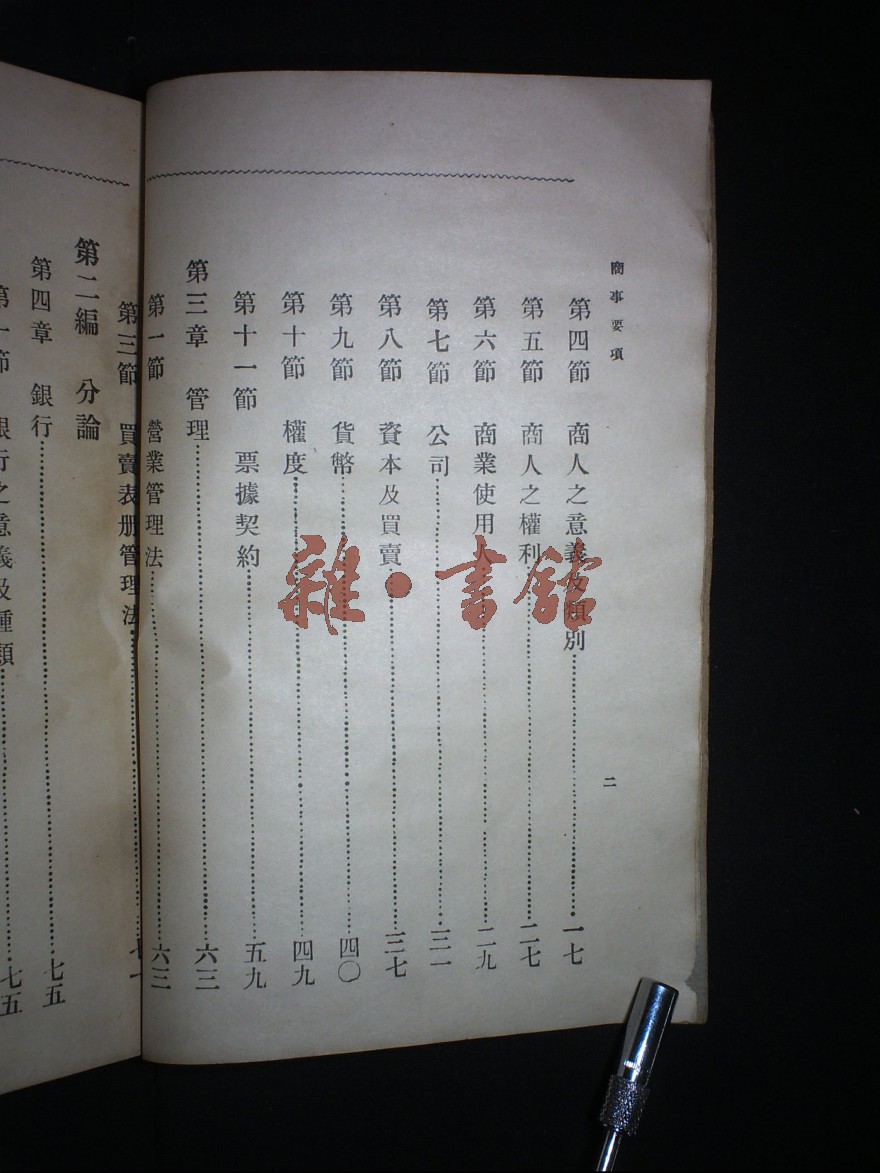 商事要項
二
第四節 商人之意義及類別 一七
第五節 商人之權利 二七
第六節 商業使用人 二九
第七節 公司 三一
第八節 資本及買賣 三七
第九節 貨幣 四〇
第十節 權度 四九
第十一節 票據契約 五九
第三章 管理 六三
第一節 營業管理法 六三
第三節 買賣表册管理法
第二編 分論
第四章 銀行 七五
第一節 銀行之意義及種類 七五
雜·書館